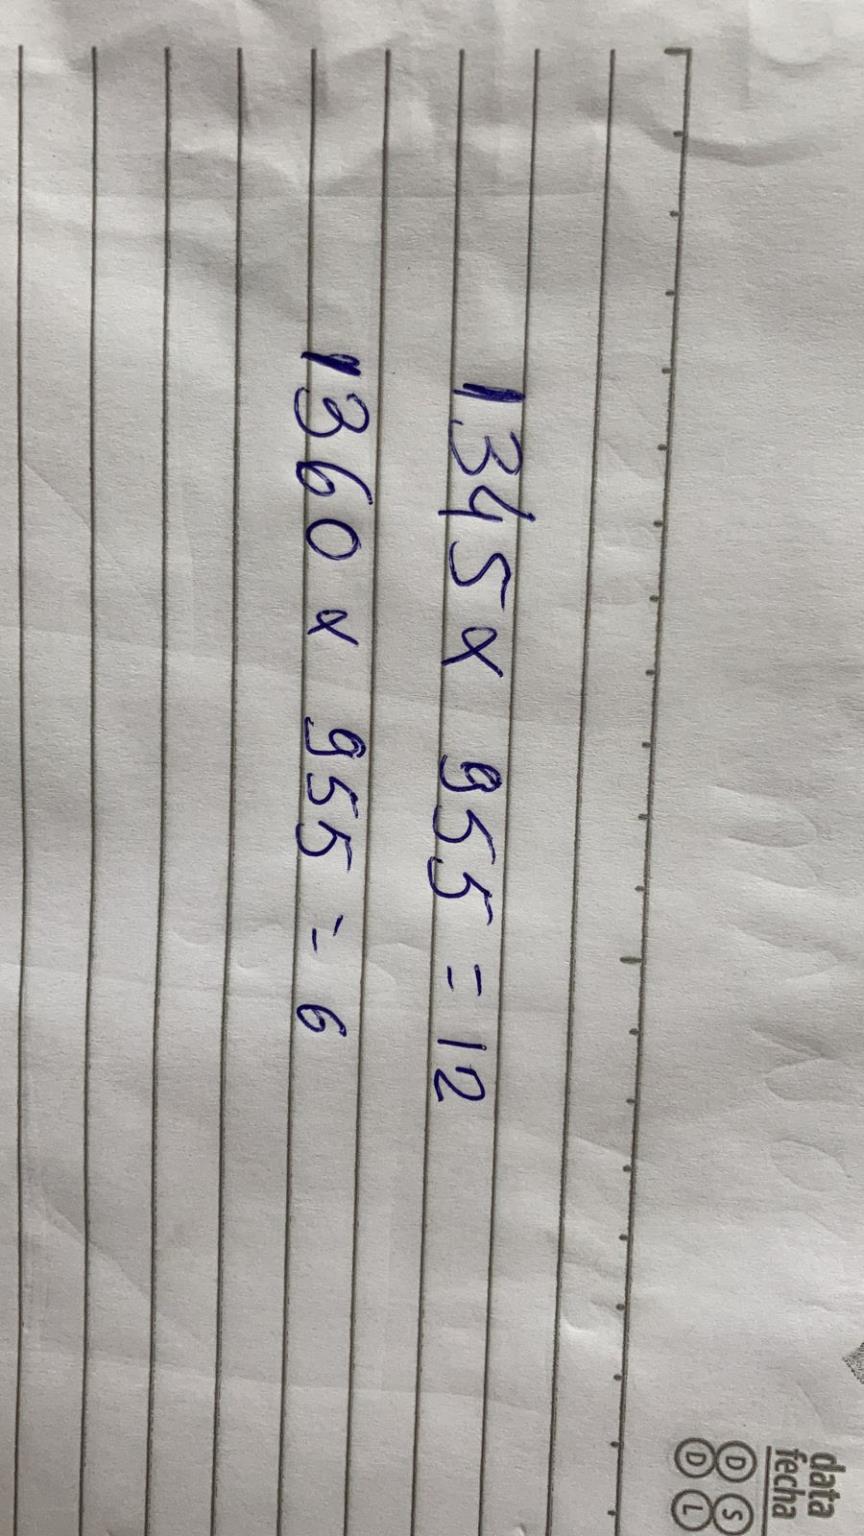 data
fecha
D S
D L
1345 x 955 = 12
1360 x 955 = 6